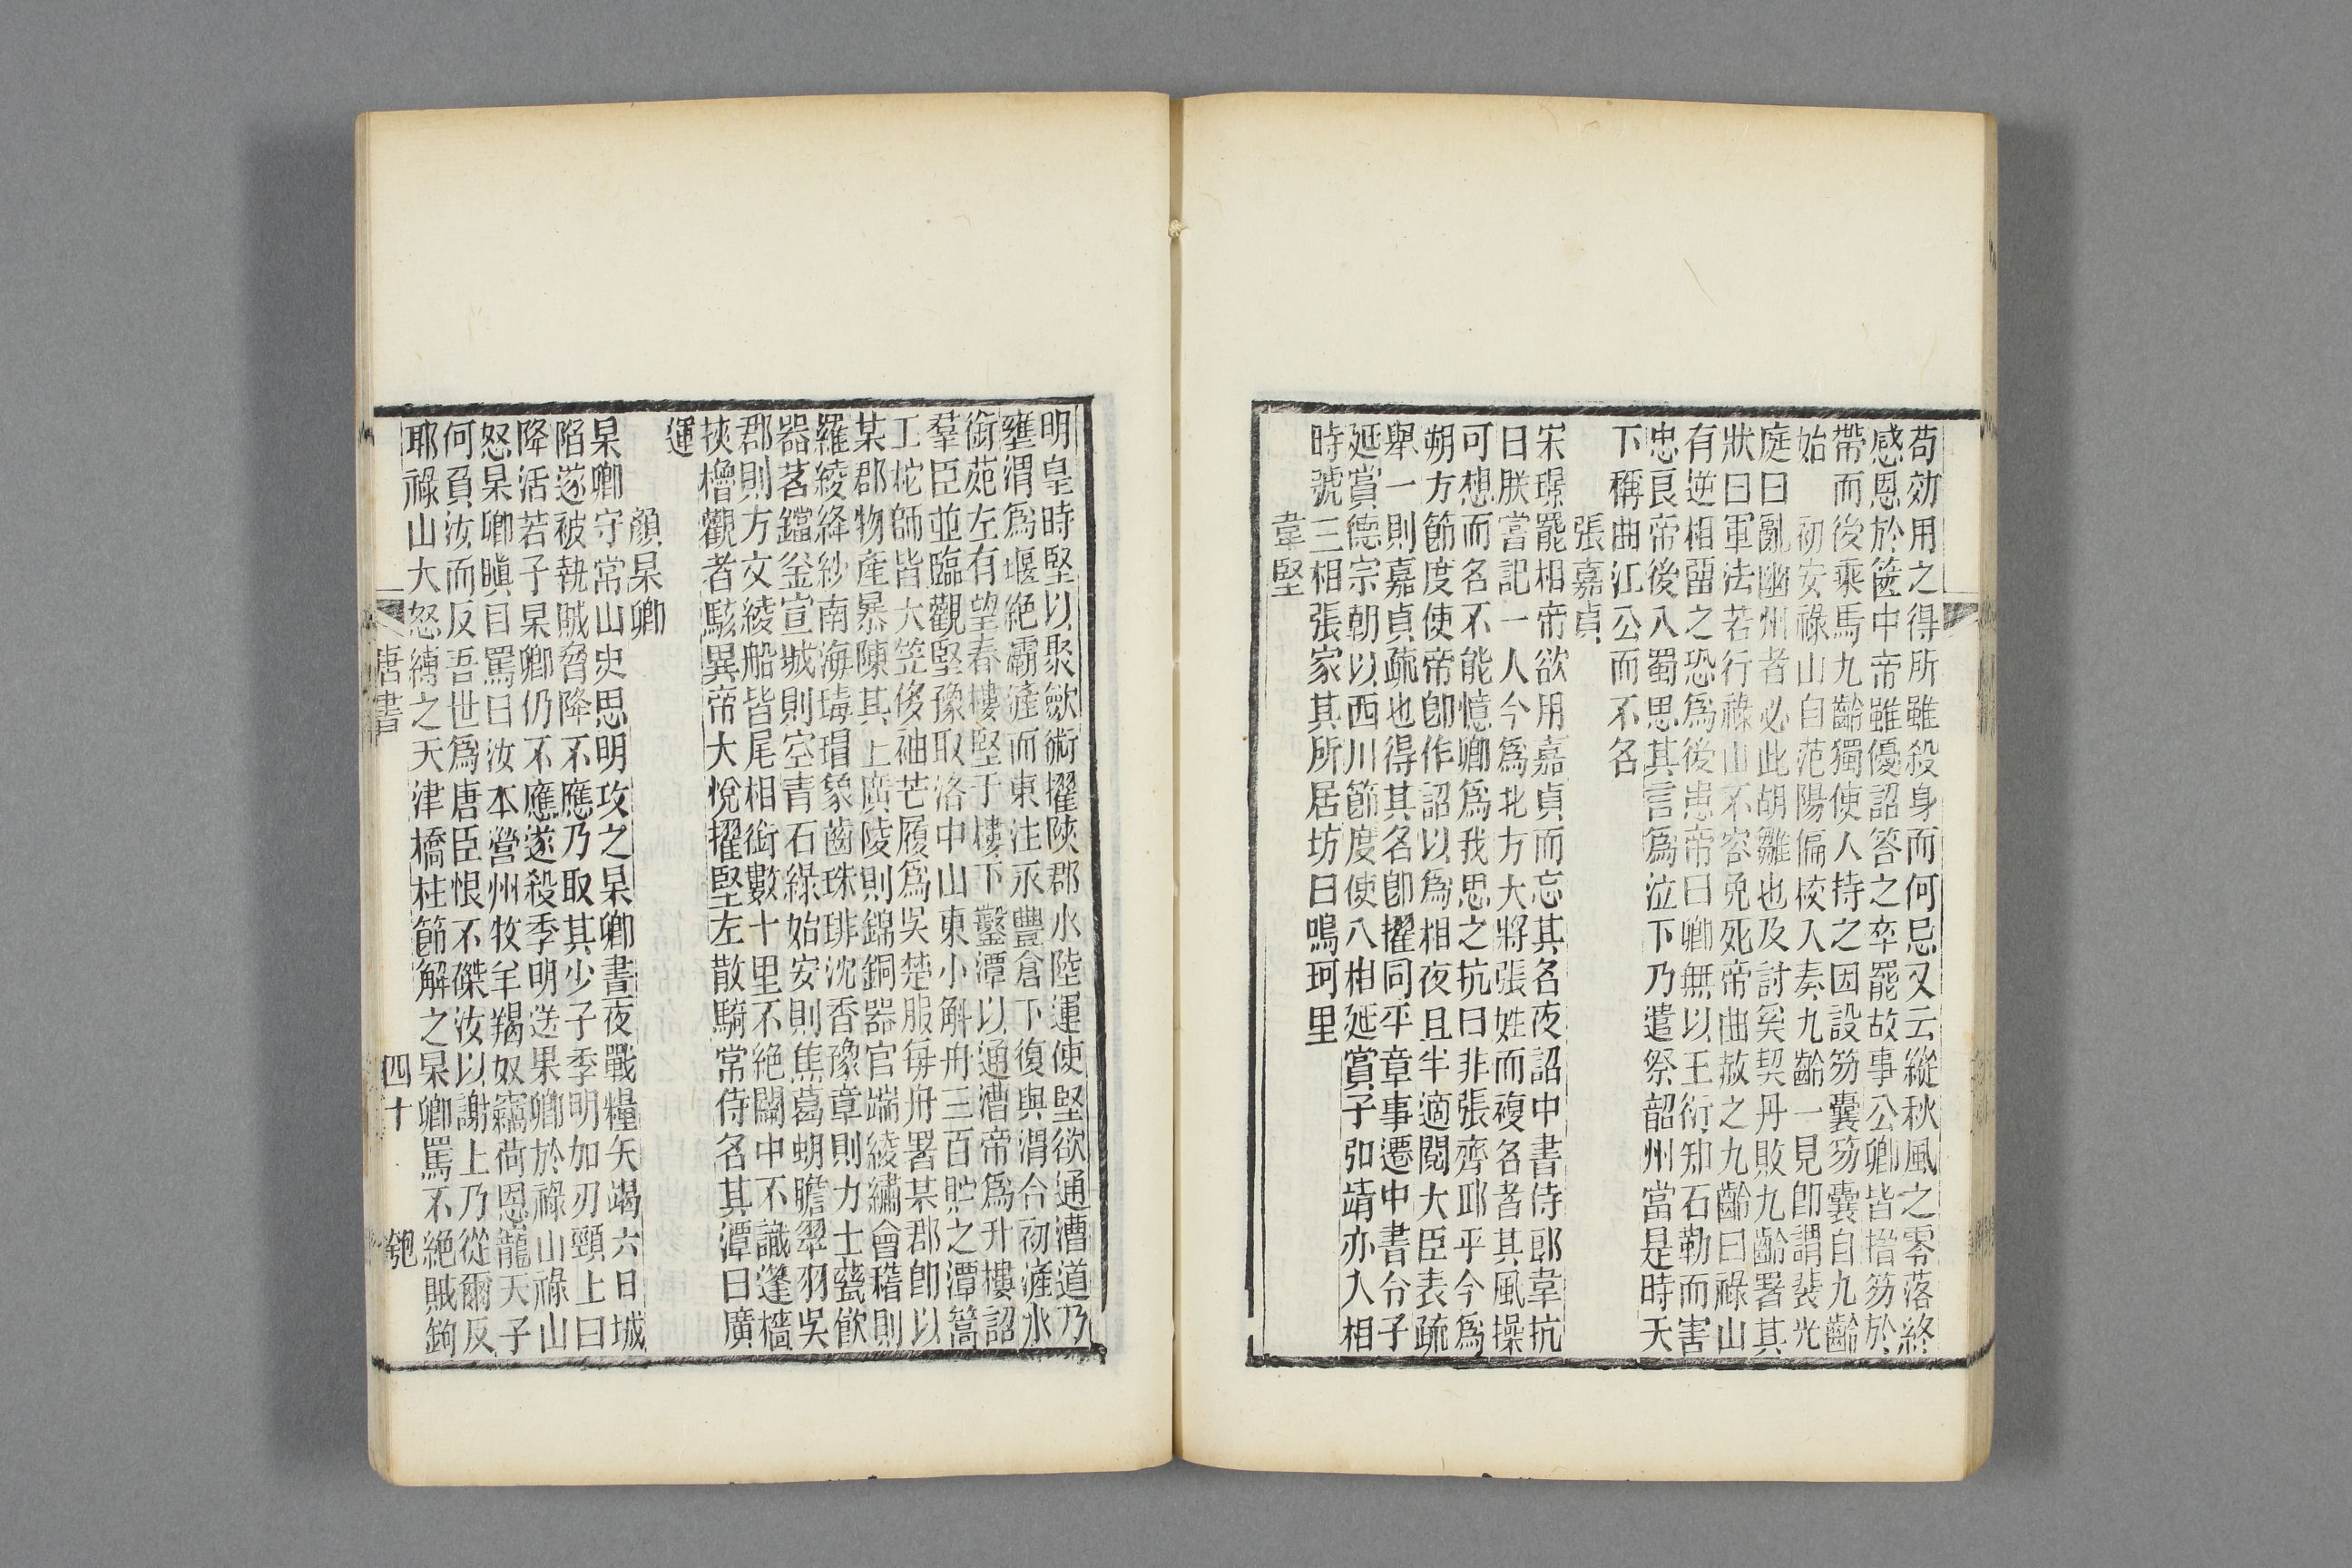 苟効用之得所雖殺身而何忌又云縱秋風之零落終
感恩於篋中帝雖優詔答之卒罷故事公卿皆搢笏於
帶而後乘馬九齡獨使人持之因設笏囊笏囊自九齡
始 初安祿山自范陽偏校入奏九齡一見卽謂裴光
庭曰亂幽州者必此胡雛也及討奚契丹敗九齡署其
狀曰軍法若行祿山不容免死帝曲赦之九齡曰祿山
有逆相留之恐爲後患帝曰卿無以王衍知石勒而害
忠良帝後入蜀思其言爲泣下乃遣祭韶州當是時天
下稱曲江公而不名
張嘉貞
宋璟罷相帝欲用嘉貞而忘其名夜詔中書侍郎韋抗
曰朕嘗記一人今爲北方大將張姓而複名者其風操
可想而名不能憶卿爲我思之抗曰非張齊邱乎今爲
朔方節度使帝卽作詔以爲相夜且半適閱大臣表疏
舉一則嘉貞疏也得其名卽擢同平章事遷中書令子
延賞德宗朝以西川節度使入相延賞子弘靖亦入相
時號三相張家其所居坊曰鳴珂里
韋堅
明皇時堅以聚歛術擢陜郡水陸運使堅欲通漕道乃
壅渭爲堰絶灞滻而東注永豐倉下復與渭合初滻水
銜苑左有望春樓堅于樓下鑿潭以通漕帝爲升樓詔
羣臣並臨觀堅豫取洛中山東小斛舟三百貯之潭篙
工柁師皆大笠侈袖芒屨爲吳楚服每舟署某郡卽以
某郡物產暴陳其上廣陵則錦銅器官端綾繡會稽則
羅綾絳紗南海瑇瑁象齒珠琲沈香豫章則力士甆飮
器茗鐺釜宣城則空青石綠始安則蕉葛蚺膽翠羽吳
郡則方文綾船皆尾相銜數十里不絶關中不識篷檣
挾櫓觀者駭異帝大悅擢堅左散騎常侍名其潭曰廣
運
顏杲卿
杲卿守常山史思明攻之杲卿晝夜戰糧矢竭六日城
陷遂被執賊脅降不應乃取其少子季明加刃頸上曰
降活若子杲卿仍不應遂殺季明送果卿於祿山祿山
怒杲卿瞋目罵曰汝本營州牧羊羯奴竊荷恩寵天子
何負汝而反吾世爲唐臣恨不磔汝以謝上乃從爾反
耶祿山大怒縛之天津橋柱節解之杲卿罵不絶賊鉤
唐書 四十 匏